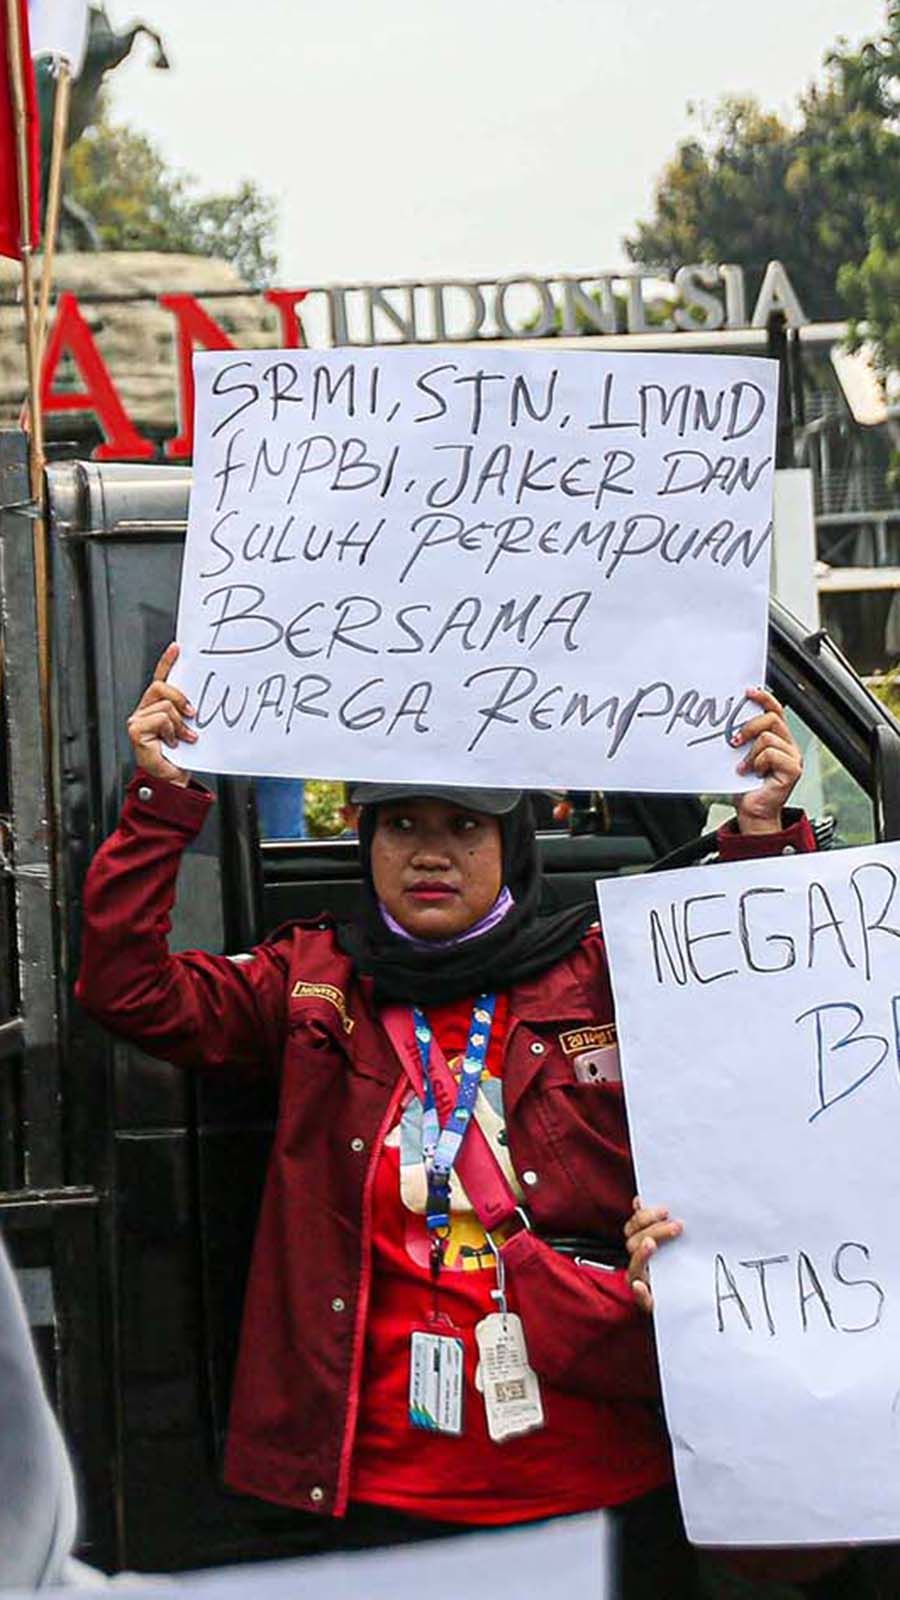 AN INDONESIA
SRMI, STN, LMND
FNPBI, JAKER DAN
SULUH PEREMPUAN
BERSAMA
WARGA REMPANG
NEGAR
BE
ATAS